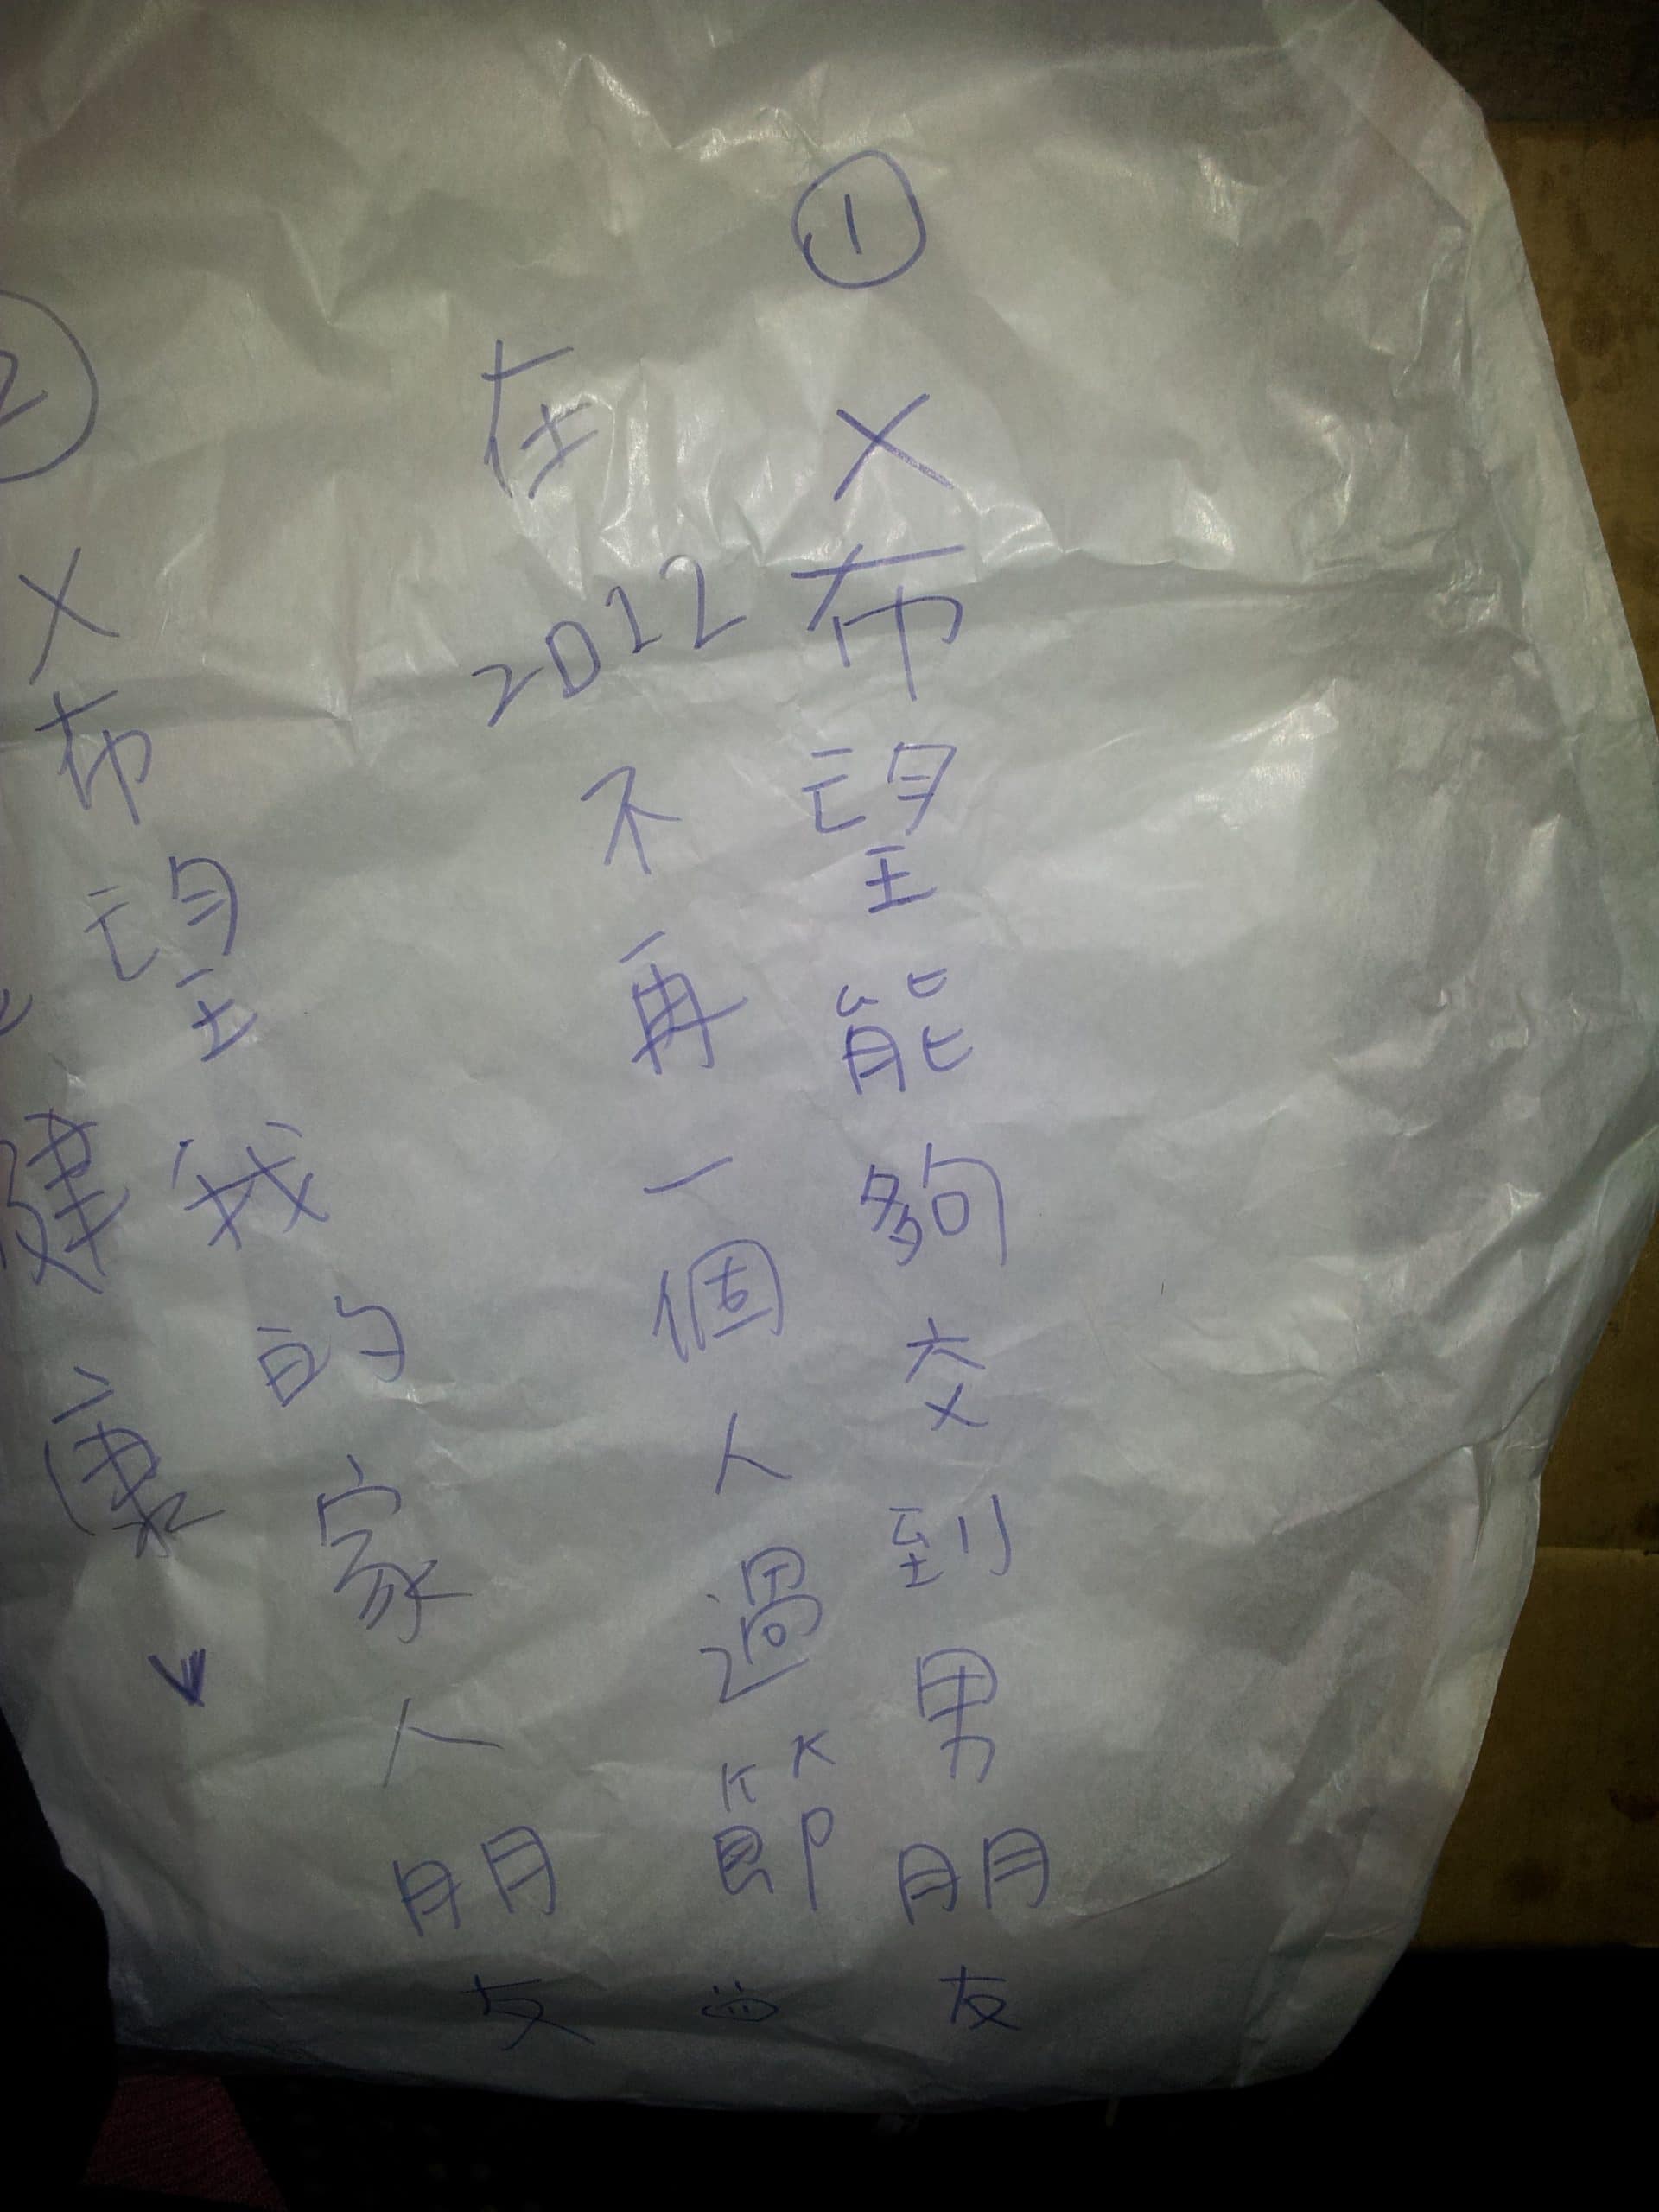 ①
希望能夠交到男朋友
在2012不再一個人過節
②
希望我的家人朋友
健康